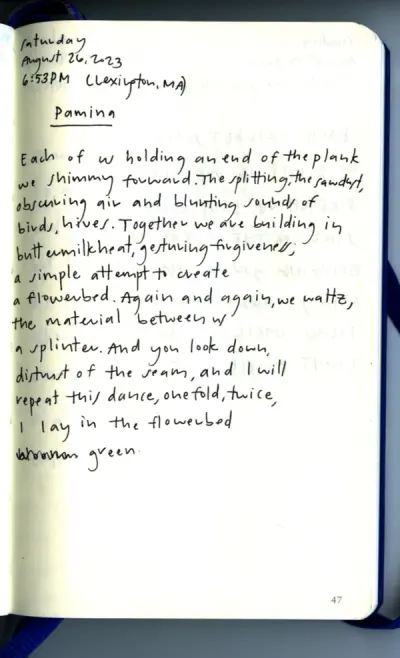 Saturday
August 26, 2023
6:53PM (Lexington, MA)
Pamina
Each of us holding an end of the plank
we shimmy forward. The splitting, the sawdust,
obscuring air and blunting sounds of
birds, hives. Together we are building in
buttermilk heat, gesturing forgiveness,
a simple attempt to create
a flowerbed. Again and again, we waltz,
the material between us
a splinter. And you look down,
distrust of the seam, and I will
repeat this dance, one fold, twice,
I lay in the flowerbed
green.
47